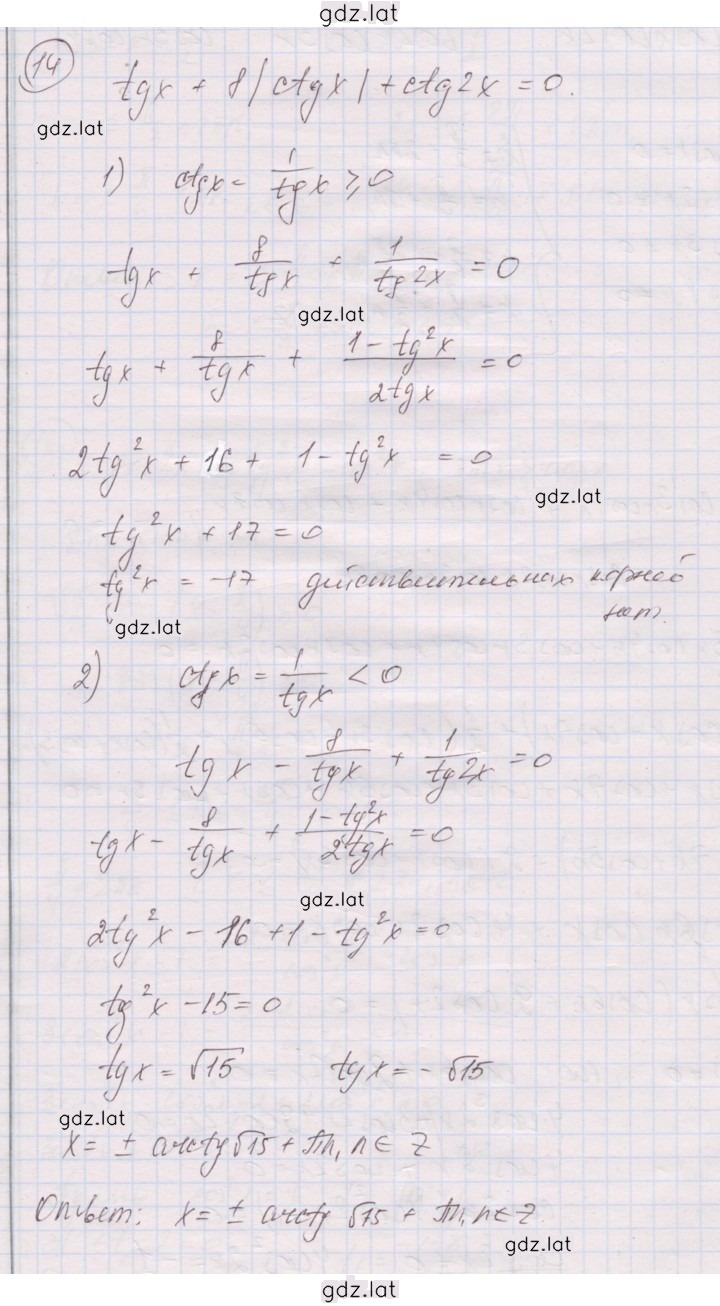 gdz.lat
14
tgx + 8|ctgx| + ctg2x = 0.
gdz.lat
1) ctgx = 1/tgx ⩾ 0
tgx + 8/tgx + 1/tg2x = 0
gdz.lat
tgx + 8/tgx + (1 - tg²x)/2tgx = 0
2tg²x + 16 + 1 - tg²x = 0
gdz.lat
tg²x + 17 = 0
tg²x = -17 действительных корней
нет.
gdz.lat
2) ctgx = 1/tgx < 0
tgx - 8/tgx + 1/tg2x = 0
tgx - 8/tgx + (1 - tg²x)/2tgx = 0
gdz.lat
2tg²x - 16 + 1 - tg²x = 0
tg²x - 15 = 0
tgx = √15 tgx = - √15
gdz.lat
x = ± arctg√15 + πn, n ∈ Z
Ответ: x = ± arctg √15 + πn, n ∈ Z
gdz.lat
gdz.lat